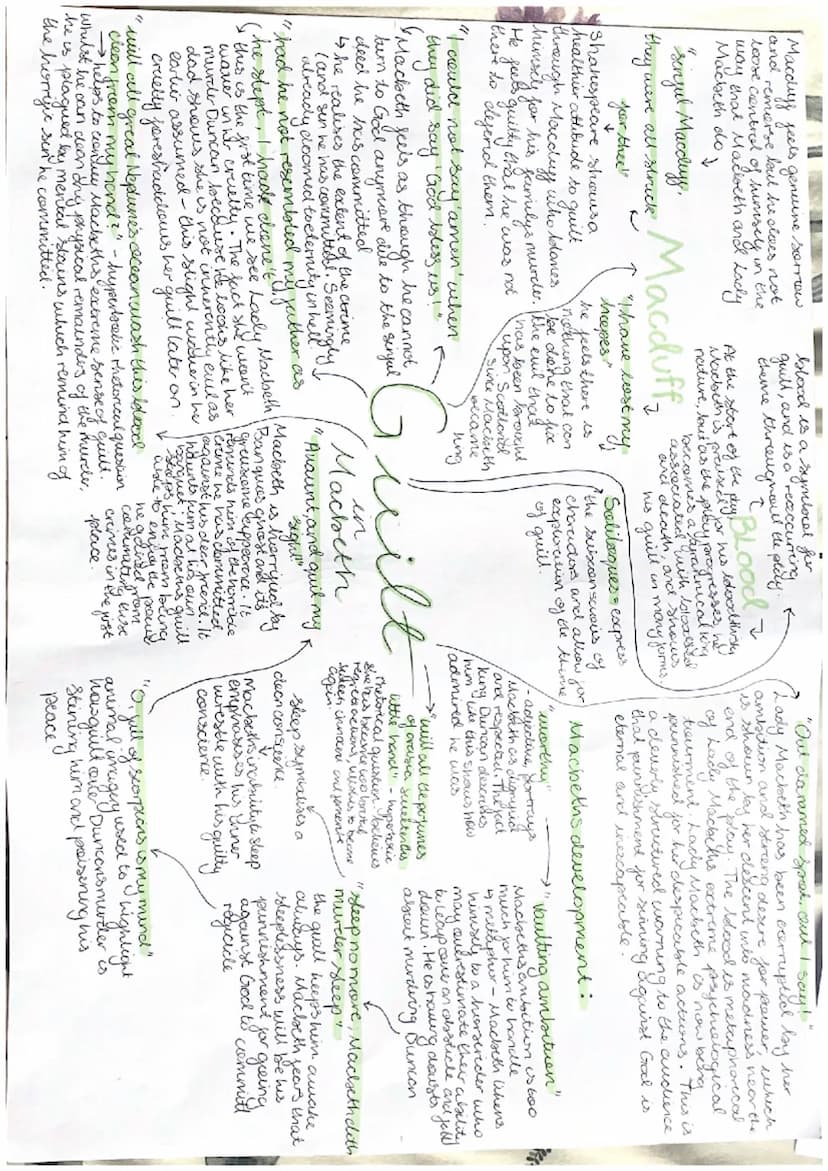 Macduff feels genuine sorrow
and remorse but he does not
loose control of himself in the
way that Macbeth and Lady
Macbeth do
"sinful Macduff,
they were all struck
for thee"
Shakespeare shows a
healthier attitude to guilt
through Macduff who blames
himself for his family's murder.
He feels guilty that he was not
there to defend them.
Macduff
"I have lost my
hopes"
he feels there is
nothing that can
be done to fix
the evil that
has been brought
upon Scotland
since Macbeth
became
king
blood is a symbol for
guilt, and is a reoccurring
theme throughout the play.
Blood
At the start of the play
Macbeth is praised for his bloodthirsty
nature, but as the play progresses he
becomes a tyrannical king
associated with bloodshed
and death, and shows
his guilt in many forms.
"Out damned spot, out I say!"
Lady Macbeth has been corrupted by her
ambition and strong desire for power, which
is shown by her descent into madness near the
end of the play. The blood is metaphorical
of Lady Macbeth's extreme psychological
treament. Lady Macbeth is now being
punished for her despicable actions. This is
a cleverly structured warning to the audience
that punishment for sinning against God is
eternal and inescapable.
"I could not say 'amen' when
they did say 'God bless us'!"
Macbeth feels as though he cannot
turn to God anymore due to the sinful
deed he has committed
↳ he realises the extent of the crime
(and sin he has committed. Seemingly
already doomed to eternity in hell.
"had he not resembled my father as
he slept, I had done't"
this is the first time we see Lady Macbeth
waver in her cruelty. The fact she won't
murder Duncan because he looks like her
dad shows she is not inherently evil as
earlier assumed - this slight waver in her
cruelty foreshadows her guilt later on.
"will all great Neptune's ocean wash this blood
clean from my hand?" - hyperbolic rhetorical question
→ helps to convey Macbeth's extreme sense of guilt.
whilst he can clean any physical remainders of the murder,
he is plagued by mental stains which remind him of
the horrific sin he committed.
Guilt
in
Macbeth
Soliloquies express
the subconscious of
characters and allow for
exploration of the theme
of guilt.
"Avaunt, and quit my
sight"
Macbeth is horrified by
Banquo's ghost and its
gruesome appearance. It
reminds him of the horrible
crime he has committed
against his dear friend. It
haunts him at his own
banquet. Macbeth's guilt
stops him from being
able to enjoy the power
he gained from
committing these
crimes in the first
place.
Macbeth's development:
"worthy"
- adjective, portrays
Macbeth as dignified
and respected. The fact
King Duncan describes
him like this shows how
admired he was
"vaulting ambition"
Macbeth's ambition is too
much for him to handle
↳ metaphor - Macbeth likens
himself to a horserider who
may overestimate their ability
to leap over an obstacle and fall
down. He is having doubts
about murdering Duncan
"will all the perfumes
of arabia sweeten this
little hand" - hyperbolic
rhetorical question. Believes
she has become too
regrets actions, wishes to be
innocent and
again.
Sleep symbolises a
clean conscience.
Macbeth's inability to sleep
emphasises his inner
wrestle with his guilty
conscience.
"sleep no more, Macbeth doth
murder sleep"
the guilt keeps him awake
always. Macbeth fears that
sleeplessness will be his
punishment for going
against God to commit
regicide
"O full of scorpions is my mind"
animal imagery used to highlight
how guilt over Duncan's murder is
stinging him and poisoning his
peace